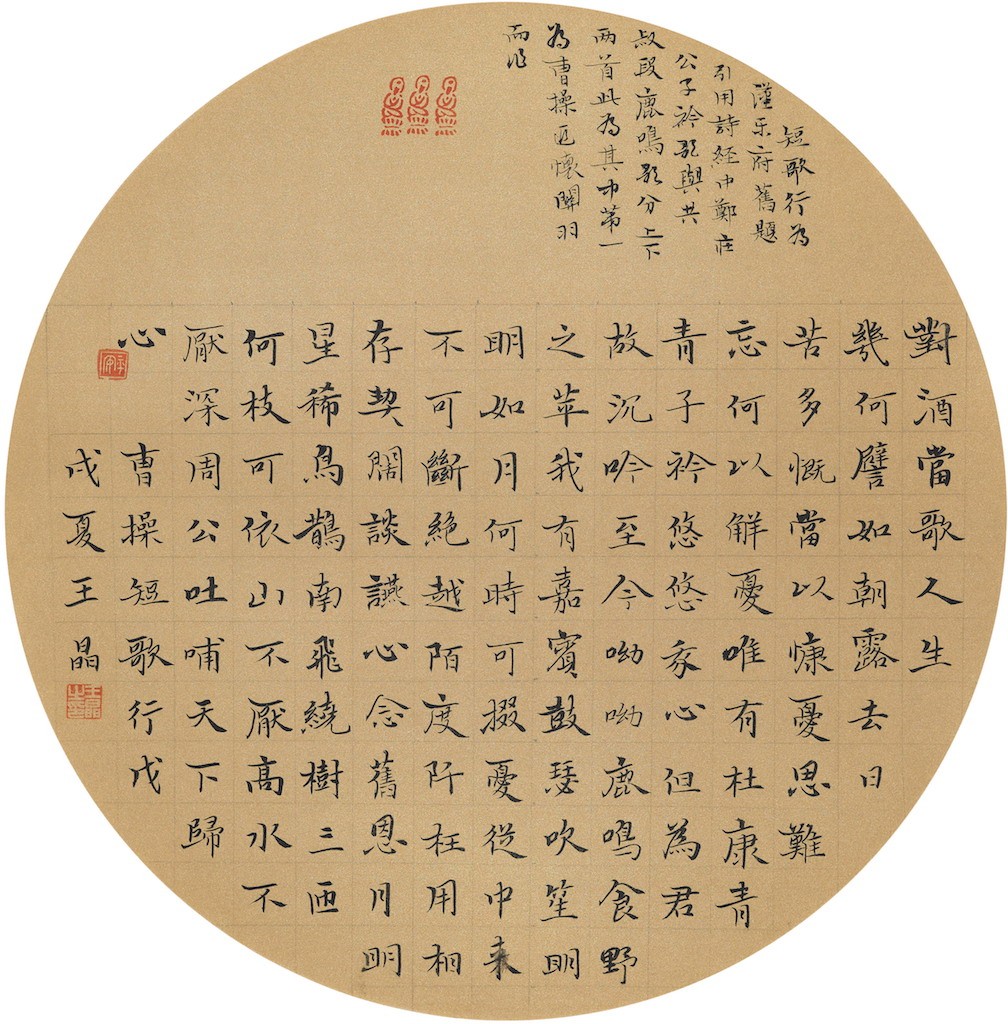 短歌行為
漢乐府舊題
引用詩經中鄭莊
公子衿歌與共
叔段鹿鳴歌分上下
两首此為其中第一
為曹操追懷關羽
而作
對酒當歌人生
幾何譬如朝露去日
苦多慨當以慷憂思難
忘何以解憂唯有杜康青
青子衿悠悠我心但為君
故沉吟至今呦呦鹿鳴食野
之苹我有嘉賓鼓瑟吹笙明
明如月何時可掇憂從中来
不可斷絕越陌度阡枉用相
存契闊談讌心念舊恩月明
星稀烏鵲南飛繞樹三匝
何枝可依山不厭高水不
厭深周公吐哺天下歸
心 曹操短歌行戊
戌夏王晶
王晶之印